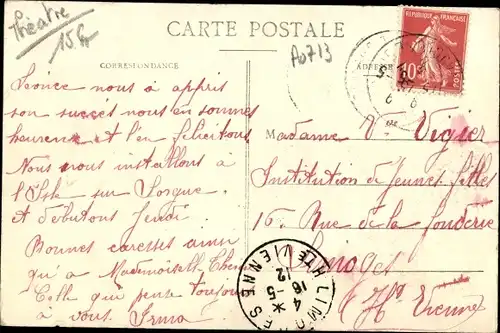 Théatre
15 f
CARTE POSTALE
A0713
CORRESPONDANCE
ADRESSE
RÉPUBLIQUE FRANÇAISE
10c
POSTES
Léonce nous a appris
son succès nous en sommes
heureux et l'en félicitons
Nous nous installons à
l'Isle sur Sorgue
et débutons Jeudi
Bonnes caresses ainsi
qu'à Mademoiselle
Celle qui pense toujours
à vous Irma
Madame V. Vigier
Institution de Jeunes filles
16, Rue de la Fonderie
Limoges
(Hte Vienne)
LIMOGES
HTE VIENNE
12
16
4 - 5